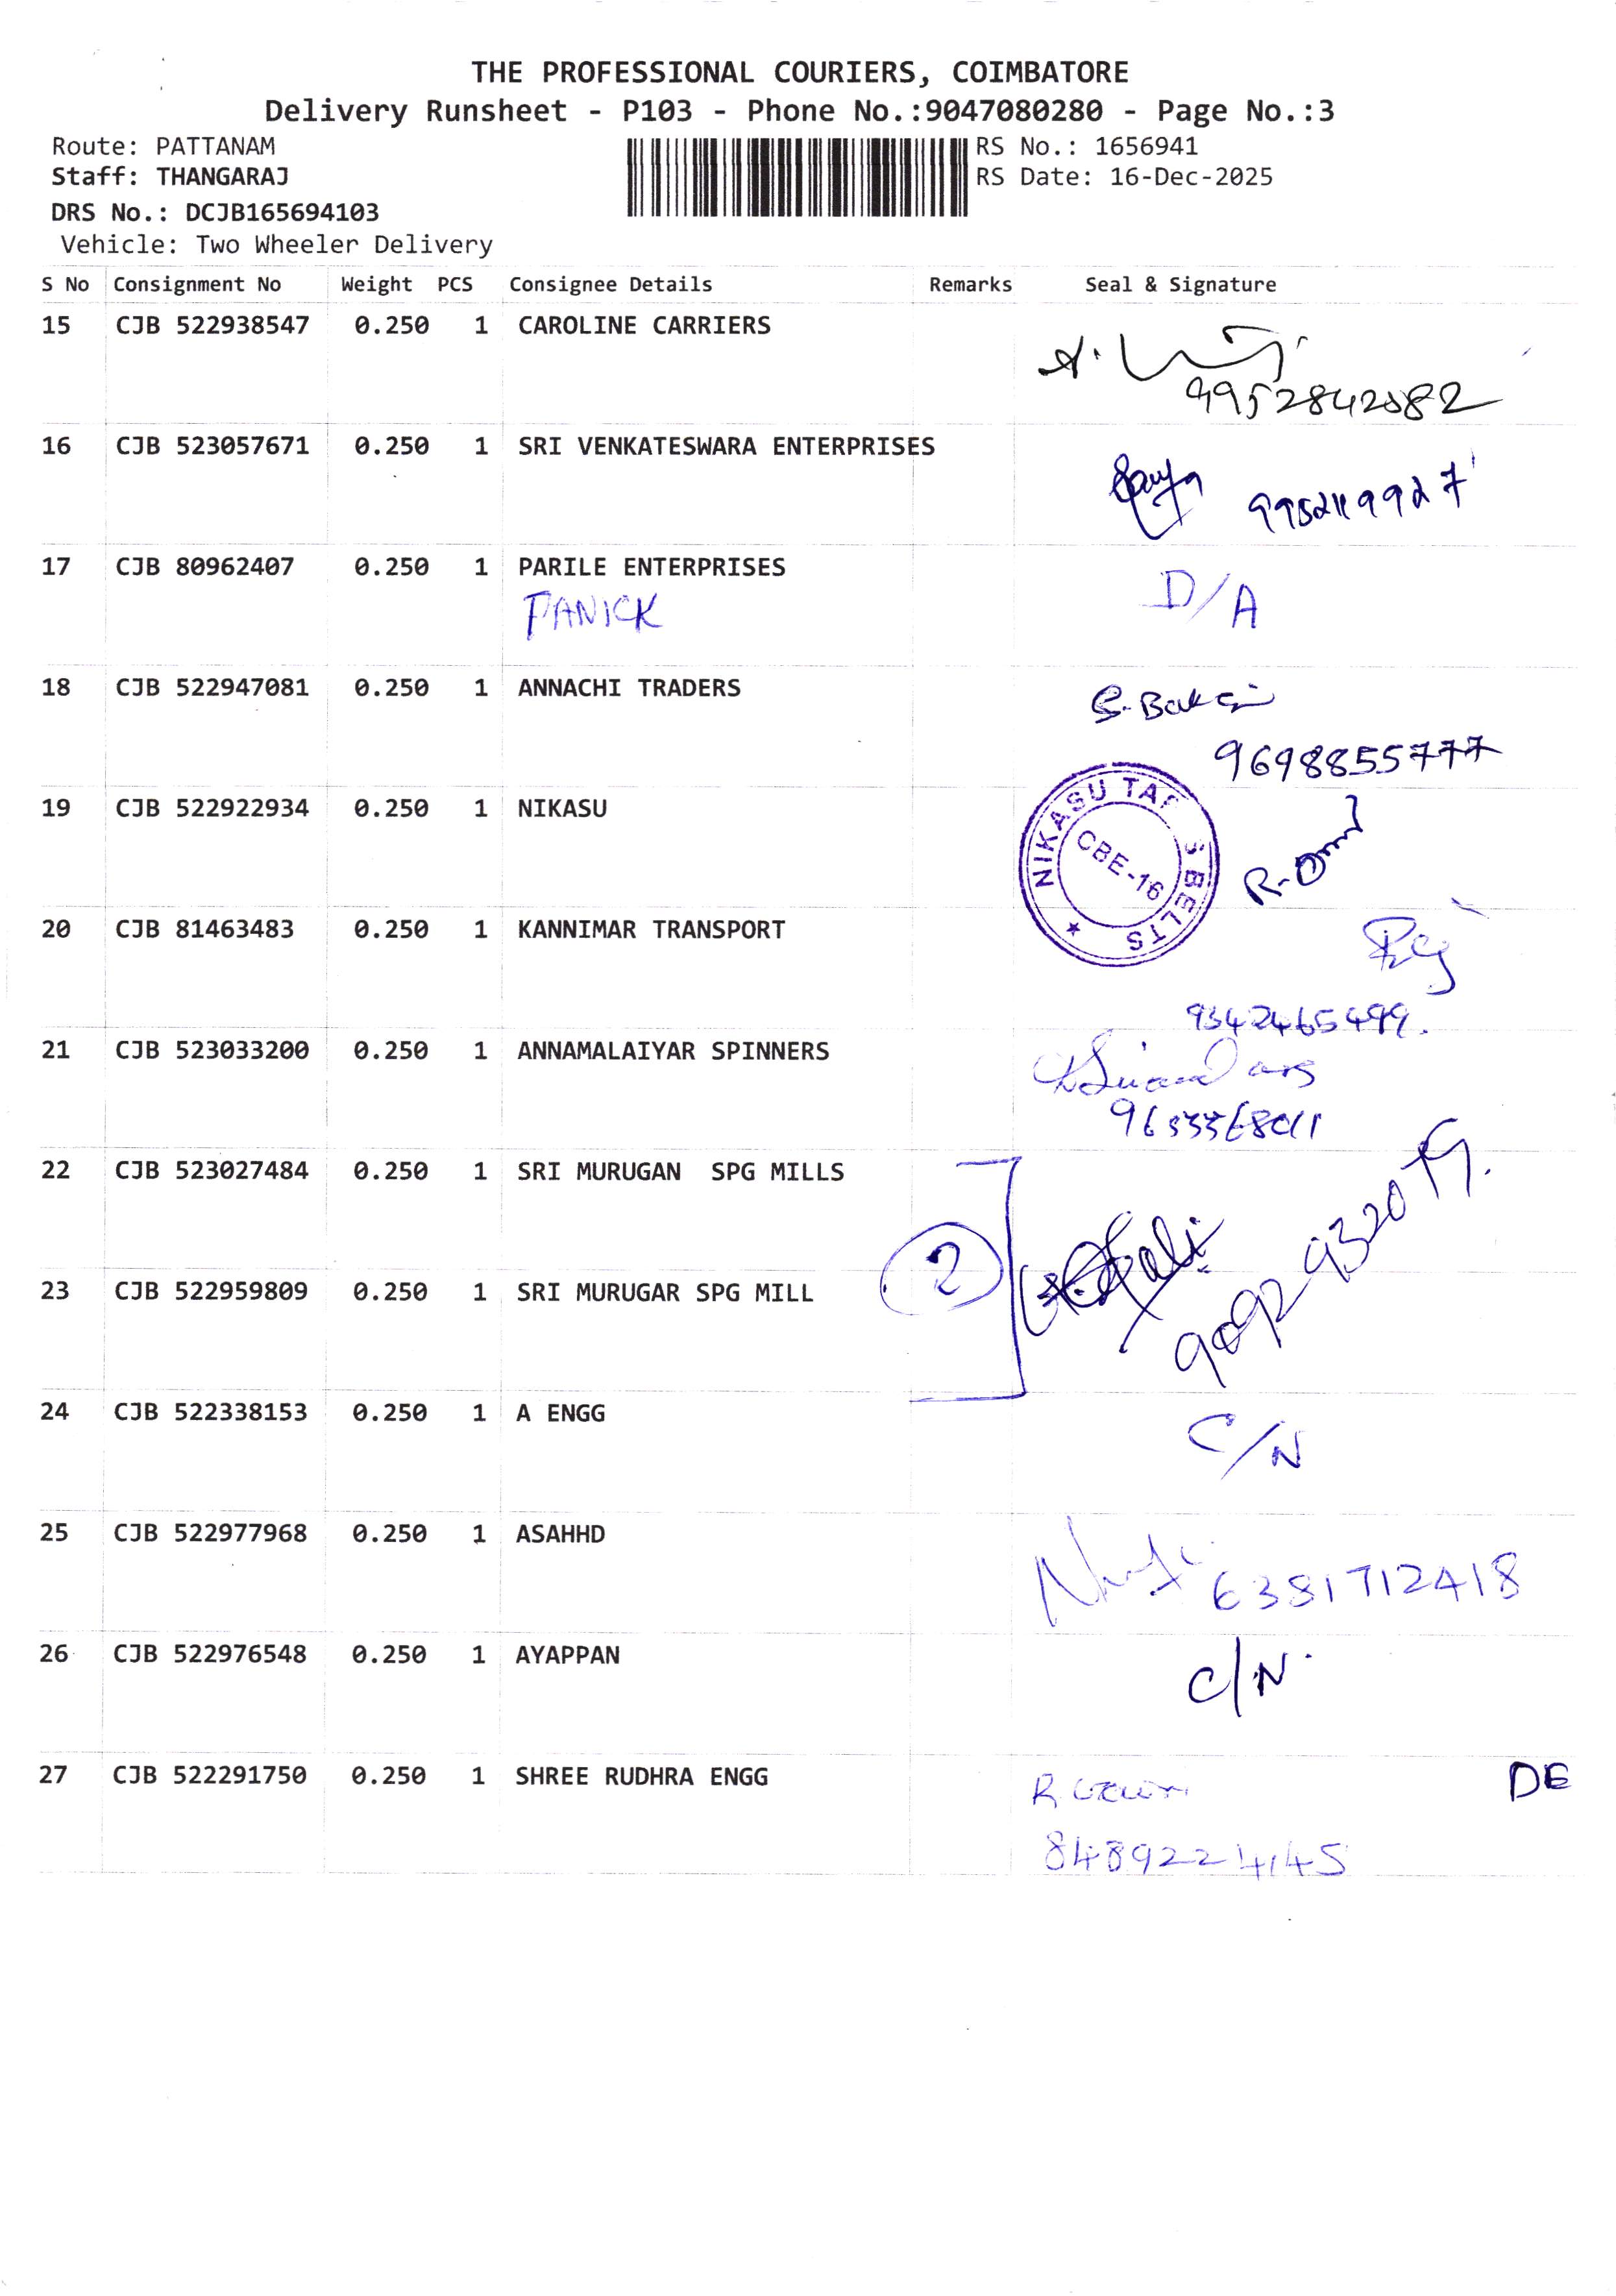 THE PROFESSIONAL COURIERS, COIMBATORE
Delivery Runsheet - P103 - Phone No.:9047080280 - Page No.:3
Route: PATTANAM
RS No.: 1656941
Staff: THANGARAJ
RS Date: 16-Dec-2025
DRS No.: DCJB165694103
Vehicle: Two Wheeler Delivery
S No Consignment No Weight PCS Consignee Details Remarks Seal & Signature
15 CJB 522938547 0.250 1 CAROLINE CARRIERS
16 CJB 523057671 0.250 1 SRI VENKATESWARA ENTERPRISES
9952119927
17 CJB 80962407 0.250 1 PARILE ENTERPRISES
PANICK
D/A
18 CJB 522947081 0.250 1 ANNACHI TRADERS
9698855777
19 CJB 522922934 0.250 1 NIKASU
NIKASU BELTS
CBE-16
20 CJB 81463483 0.250 1 KANNIMAR TRANSPORT
9342465499.
21 CJB 523033200 0.250 1 ANNAMALAIYAR SPINNERS
22 CJB 523027484 0.250 1 SRI MURUGAN SPG MILLS
2
23 CJB 522959809 0.250 1 SRI MURUGAR SPG MILL
24 CJB 522338153 0.250 1 A ENGG
C/N
25 CJB 522977968 0.250 1 ASAHHD
6381712418
26 CJB 522976548 0.250 1 AYAPPAN
C/N.
27 CJB 522291750 0.250 1 SHREE RUDHRA ENGG
DE
8489224145